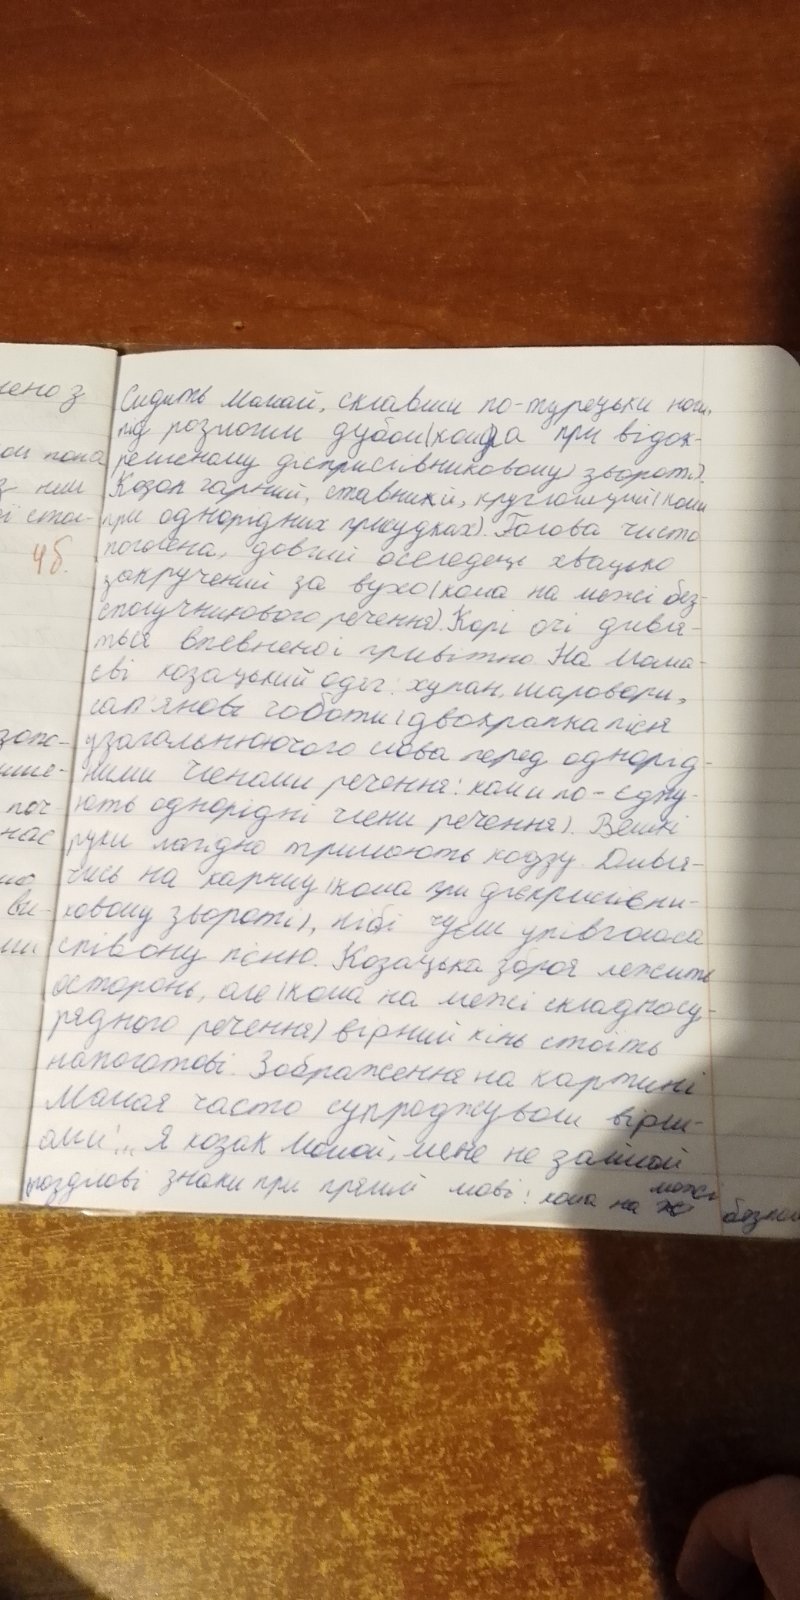 Сидить Мамай, склавши по-турецьки ноги,
під розлогим дубом (кома при відок-
ремленому дієприслівниковому звороті).
Козак гарний, ставний, круглолиций (коми
при однорідних присудках). Голова чисто
поголена, довгий оселедець хвацько
закручений за вухо (кома на межі без-
сполучникового речення). Карі очі дивля-
ться впевнено і привітно. На Мама-
єві козацький одяг: жупан, шаровари,
сап'янові чоботи (двокрапка після
узагальнюючого слова перед однорід-
ними членами речення: коми по-єдну-
ють однорідні члени речення). Вмілі
руки лагідно тримають кобзу. Дивля-
чись на картину (кома при дієприслівни-
ковому звороті), ніби чуєш упівголоса
співану пісню. Козацька зброя лежить
осторонь, але (кома на межі складносу-
рядного речення) вірний кінь стоїть
напоготові. Зображення на картині
Мамая часто супроджували вірш-
ами: „Я козак Мамай, мене не займай
розділові знаки при прямій мові: кома на межі
ено з
ом попа
з ним
і стої-
4б.
поч-
нас
ви-